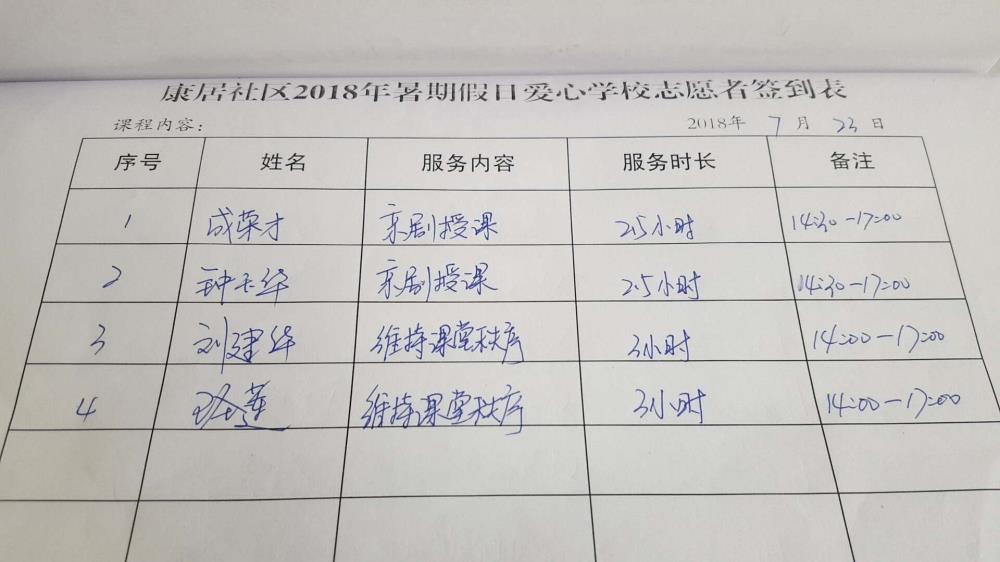 康居社区2018年暑期假日爱心学校志愿者签到表
课程内容: 2018年 7 月 23 日
序号 姓名 服务内容 服务时长 备注
1 成荣才 京剧授课 2.5小时 14:30-17:00
2 钟玉华 京剧授课 2.5小时 14:30-17:00
3 刘建华 维持课堂秩序 3小时 14:00-17:00
4 维持课堂秩序 3小时 14:00-17:00